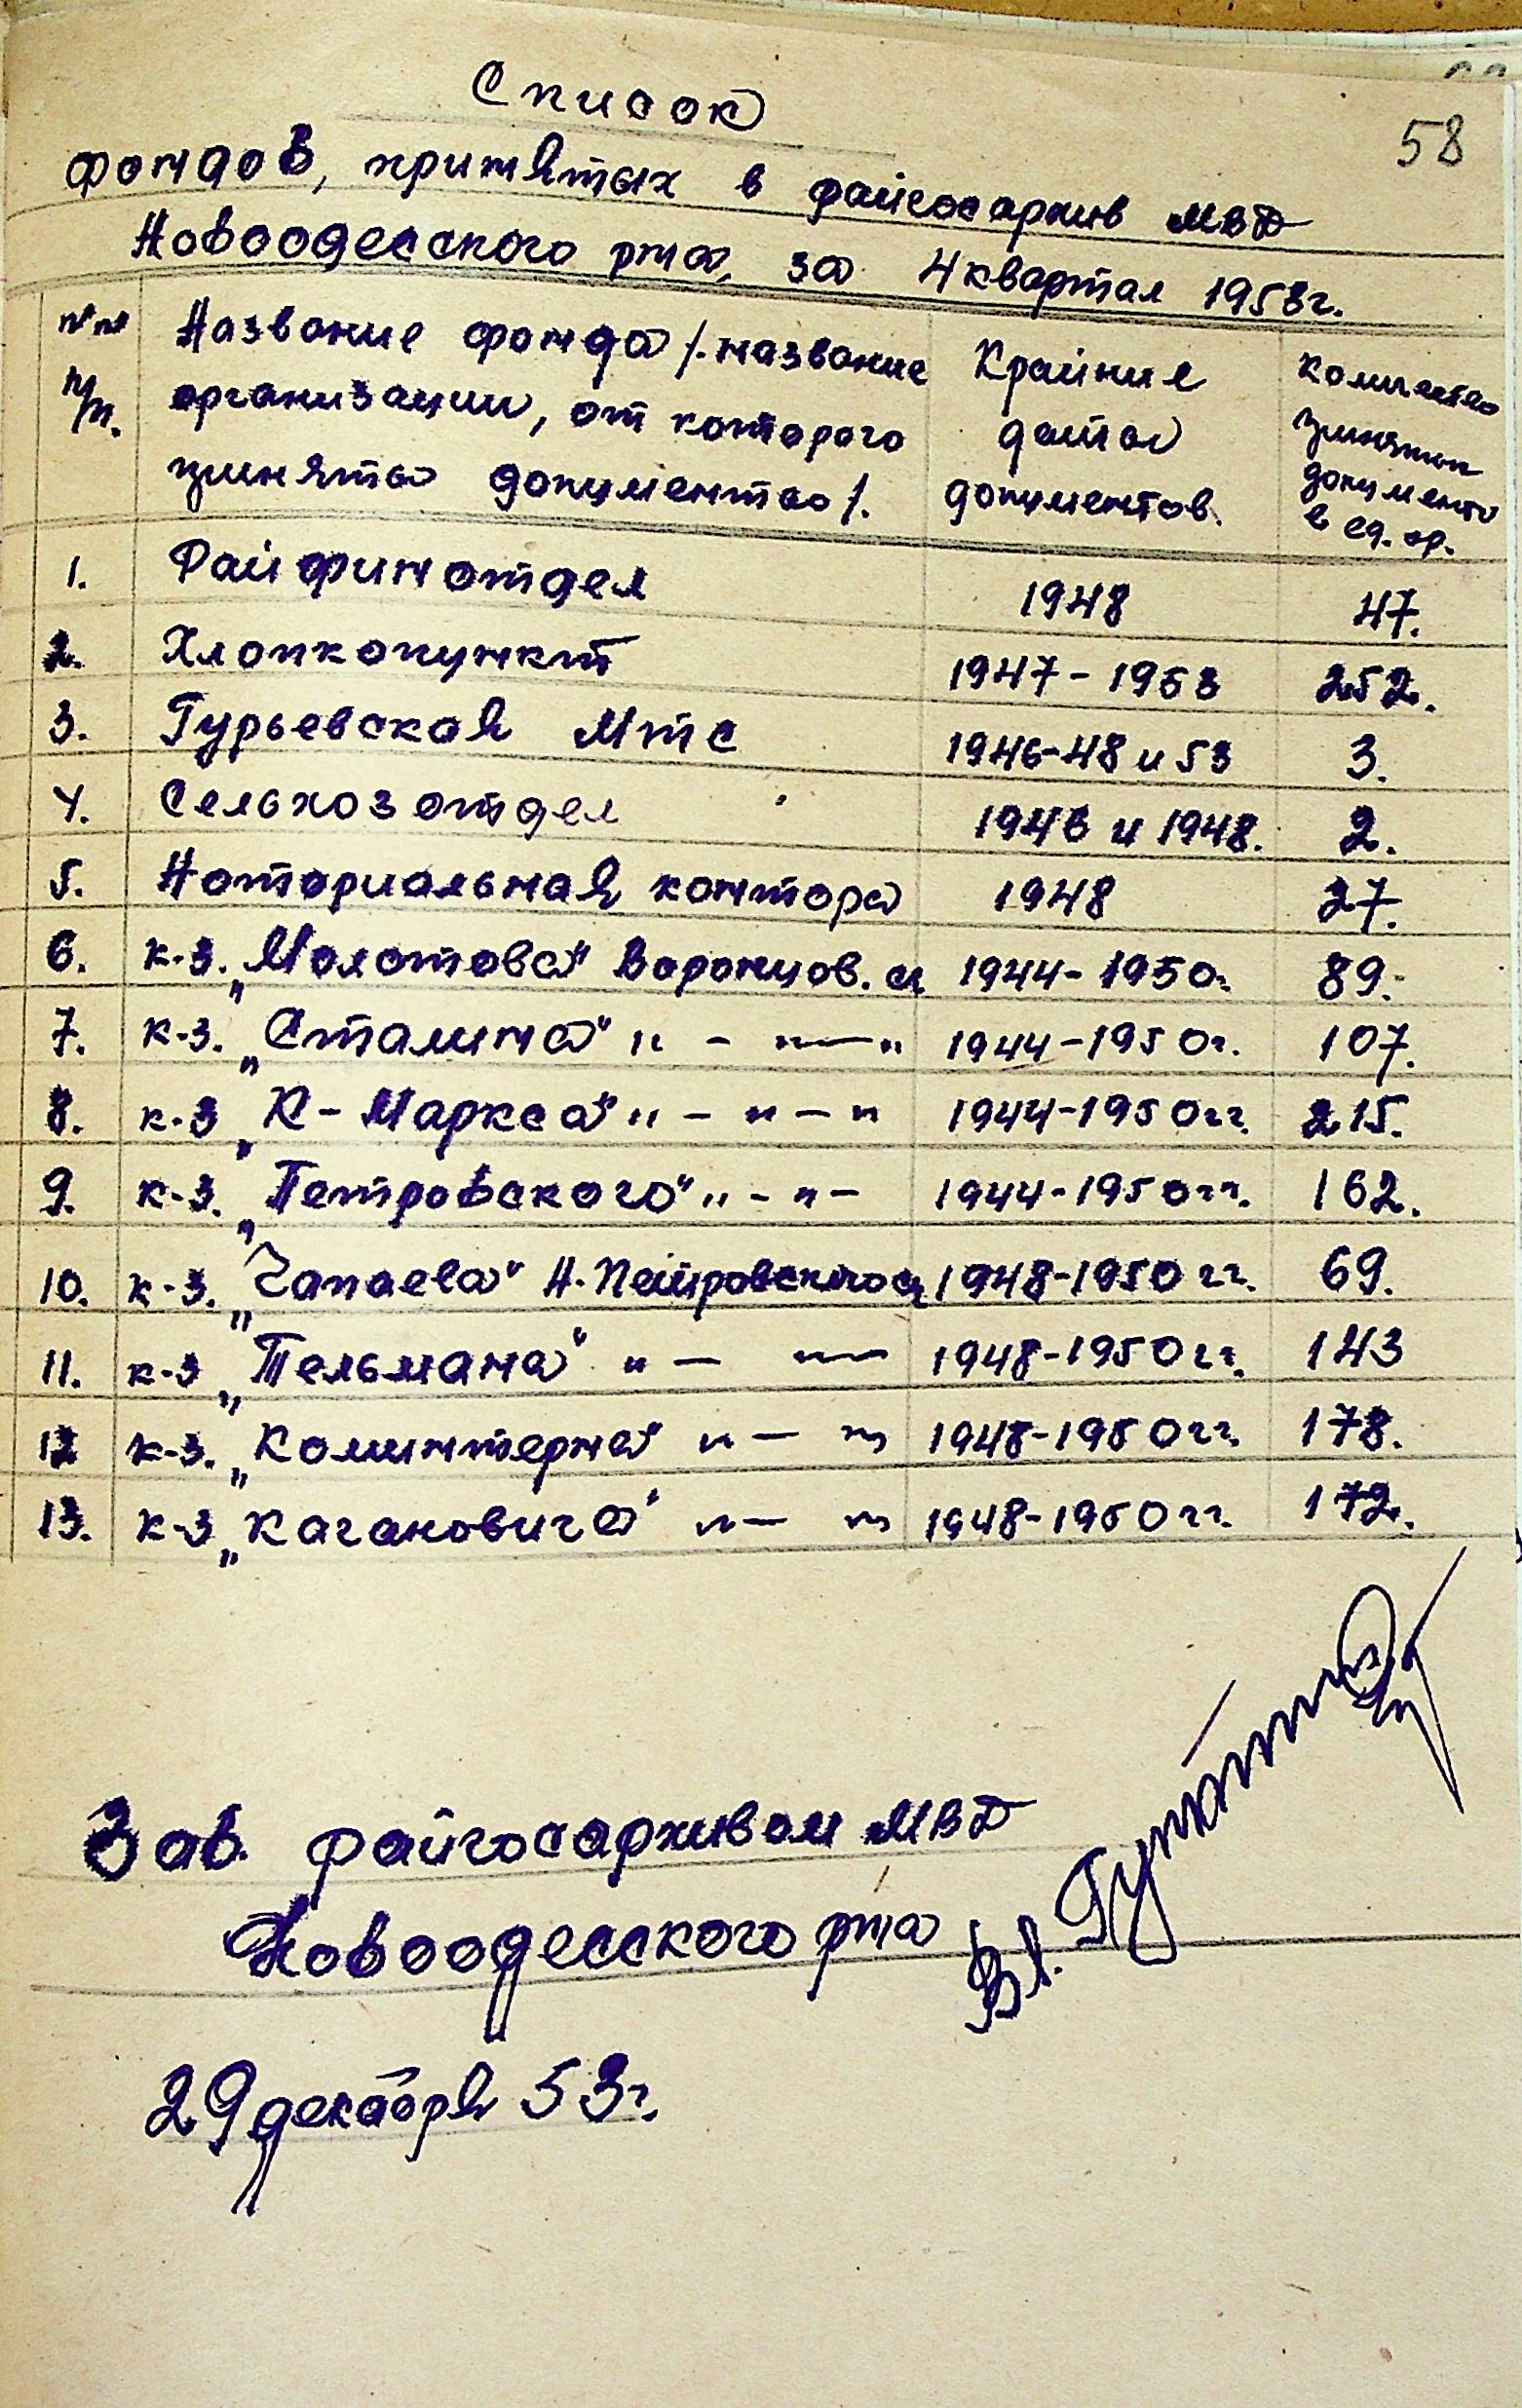 Список
58
фондов, принятых в райгосархив МВД
Новоодесского р-на, за 4 квартал 1953г.
№№ п/п. Название фонда /название организации, от которого приняты документы/. Крайние даты документов. Количество принятых документов в ед. хр.
1. Райфинотдел 1948 47.
2. Хлопкопункт 1947-1953 252.
3. Гурьевская МТС 1946-48 и 53 3.
4. Сельхозотдел 1946 и 1948. 2.
5. Нотариальная контора 1948 27.
6. к-з. „Молотова" Воронцов. с/с 1944-1950г. 89.
7. к-з. „Сталина" " - "—" 1944-1950г. 107.
8. к-з „К-Маркса" " - " - " 1944-1950гг. 215.
9. к-з. „Петровского" " - " - 1944-1950гг. 162.
10. к-з. „Чапаева" Н.Петровского с/с 1948-1950гг. 69.
11. к-з „Тельмана" " — "— 1948-1950гг. 143
12 к-з. „Коминтерна" " — " 1948-1950гг. 178.
13. к-з „Кагановича" " — " 1948-1950гг. 172.
Зав. райгосархивом МВД
Новоодесского р-на
29 декабря 53г.